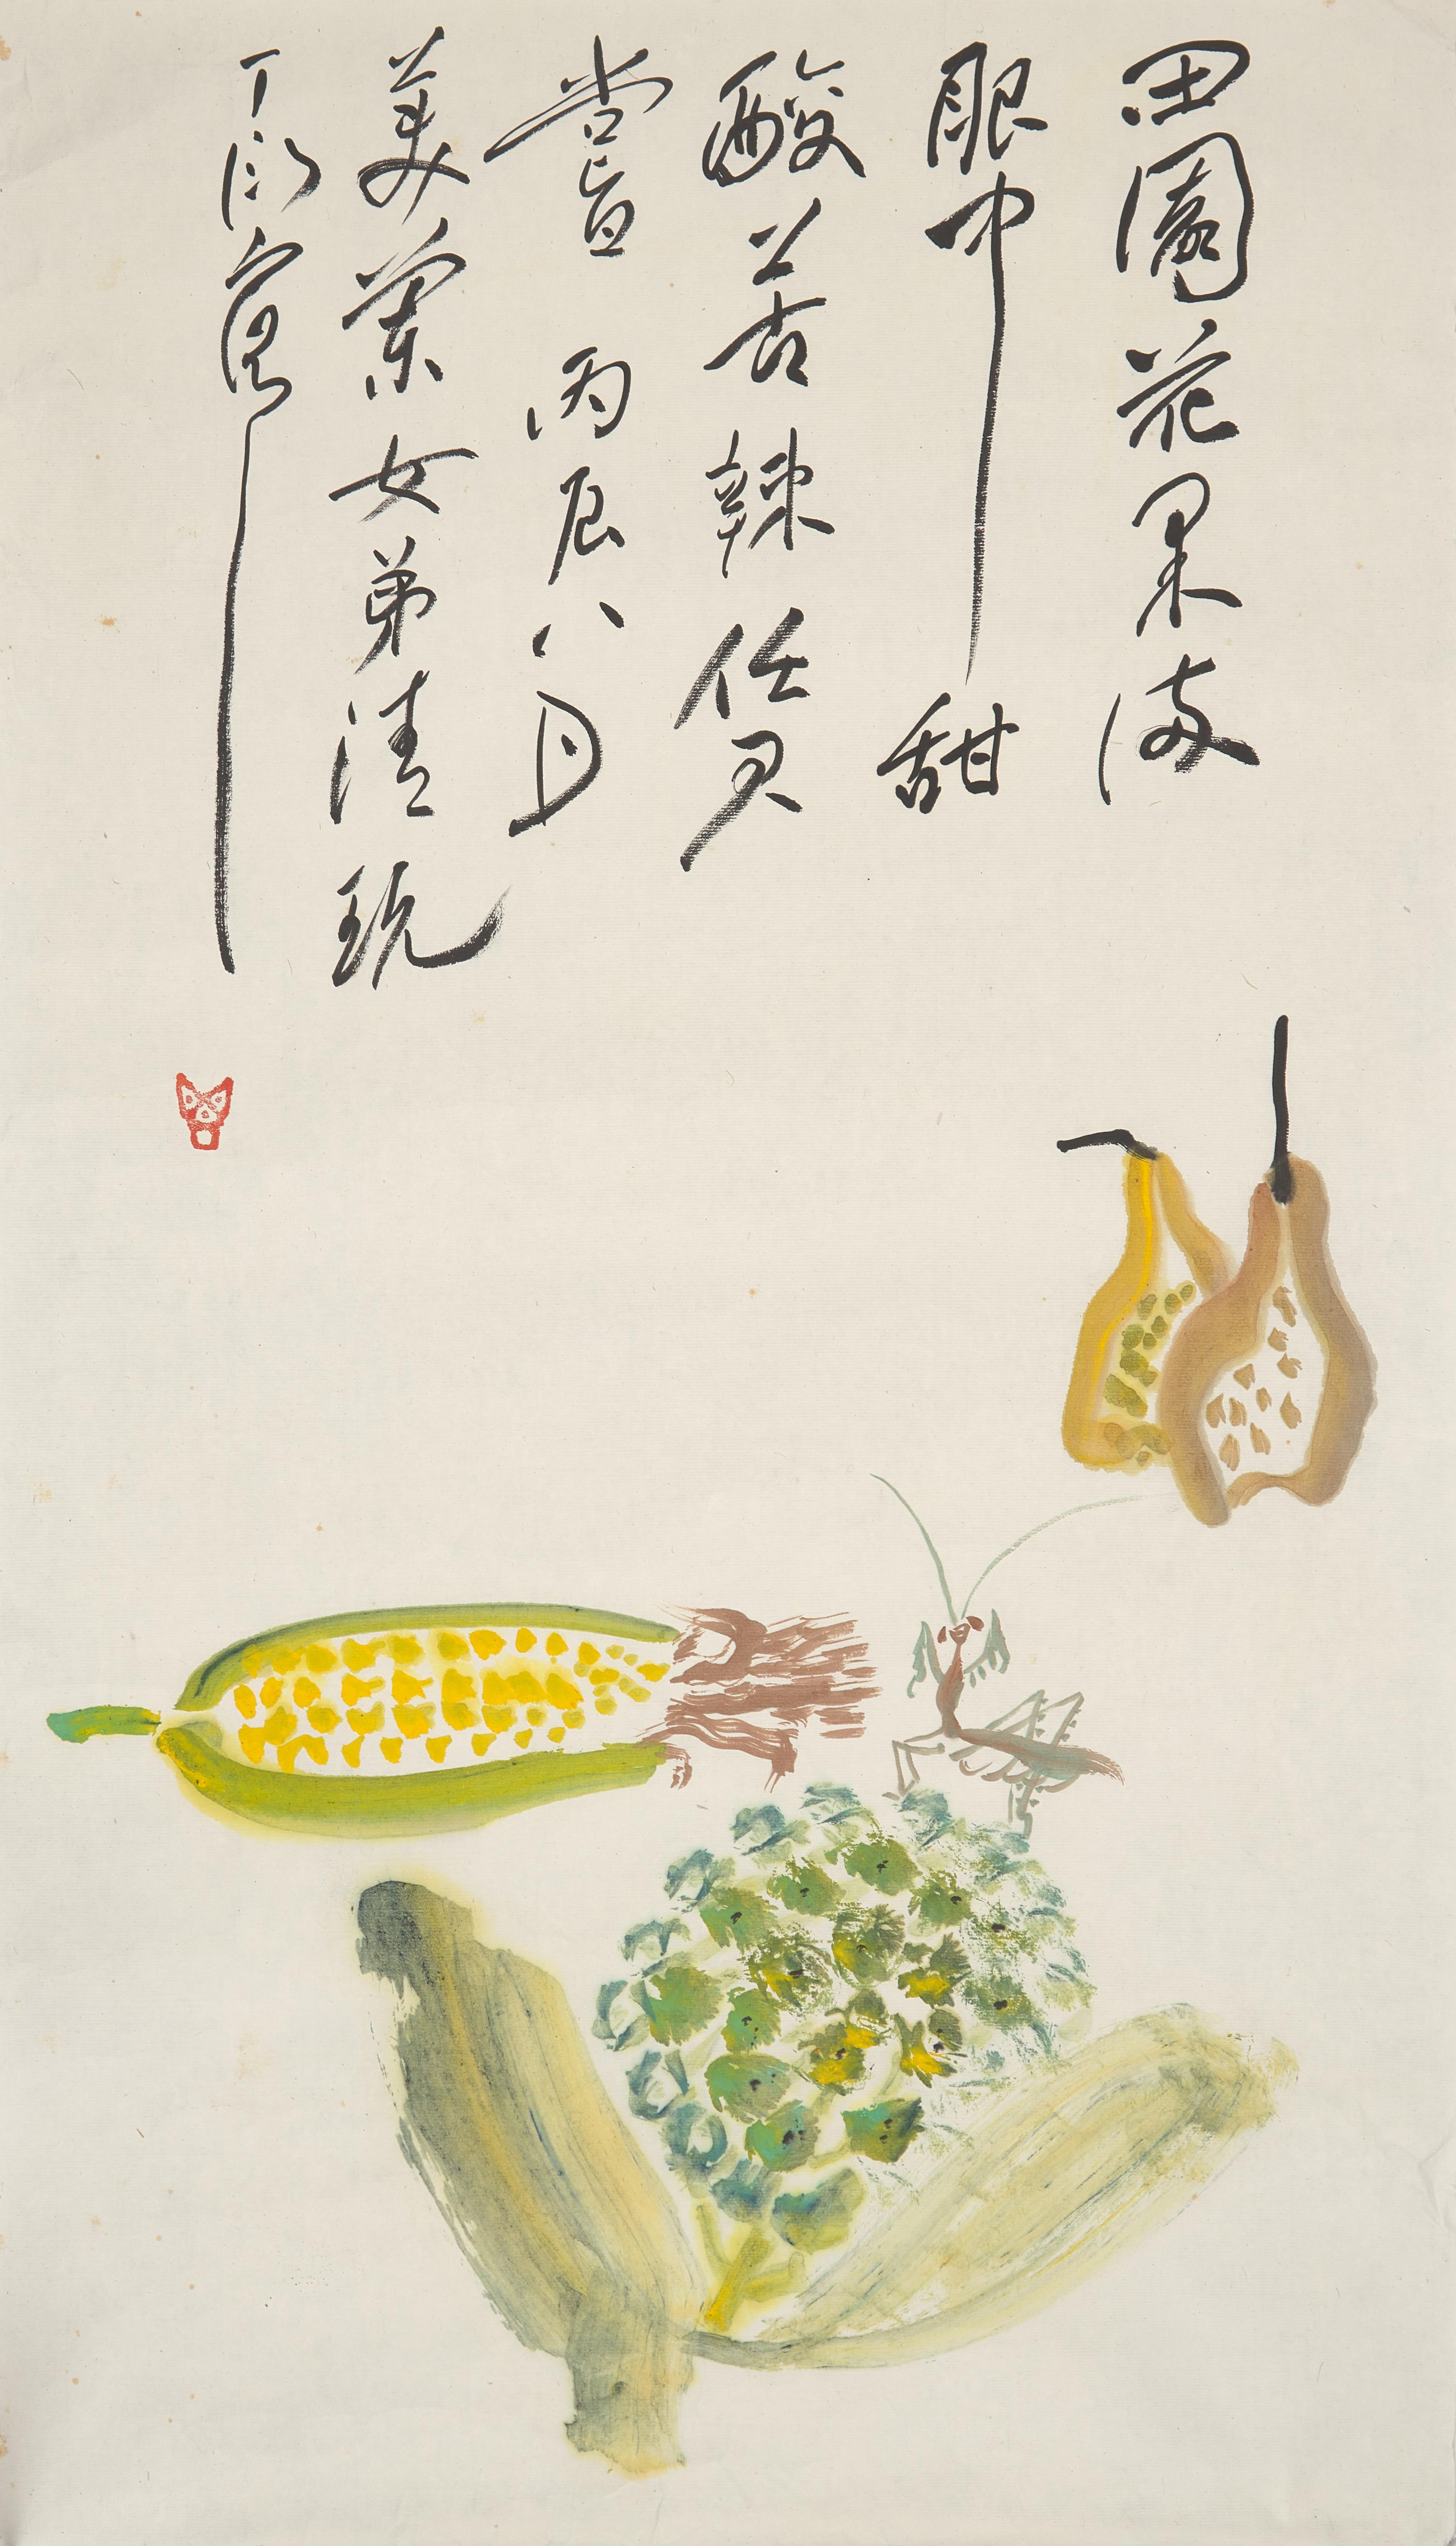 田園花果滿
眼中甜
酸苦辣任君
嘗 丙辰八月
美蘭女弟清玩
丁衍庸